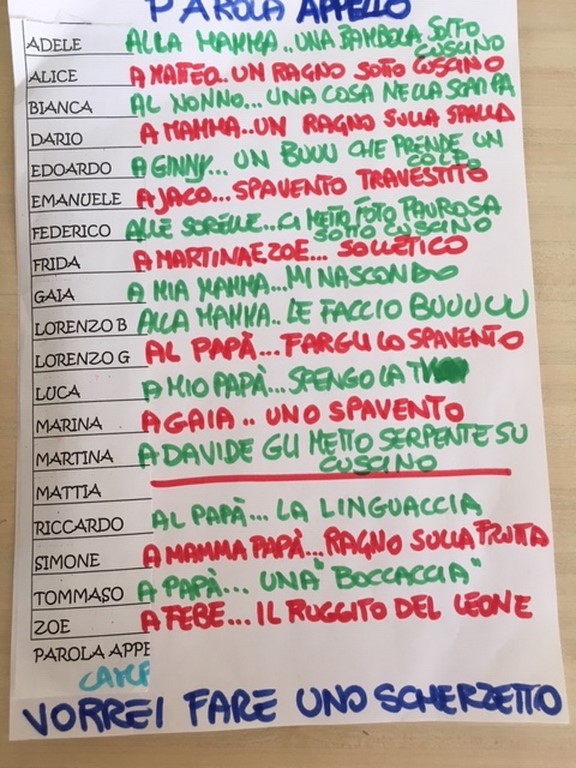 PAROLA APPELLO
ADELE ALLA MAMMA..UNA BAMBOLA SOTTO CUSCINO
ALICE A MATTEO..UN RAGNO SOTTO CUSCINO
BIANCA AL NONNO...UNA COSA NELLA SCARPA
DARIO A MAMMA..UN RAGNO SULLA SPALLA
EDOARDO A GINNY... UN BUUU CHE PRENDE UN COLPO
EMANUELE A JACO...SPAVENTO TRAVESTITO
FEDERICO ALLE SORELLE...CI METTO FOTO PAUROSA SOTTO CUSCINO
FRIDA A MARTINA E ZOE... SOLLETICO
GAIA A MIA MAMMA...MI NASCONDO
LORENZO B ALLA MAMMA..LE FACCIO BUUUUU
LORENZO G AL PAPÀ...FARGLI LO SPAVENTO
LUCA A MIO PAPÀ...SPENGO LA TV
MARINA A GAIA .. UNO SPAVENTO
MARTINA A DAVIDE GLI METTO SERPENTE SU CUSCINO
MATTIA
RICCARDO AL PAPÀ... LA LINGUACCIA
SIMONE A MAMMA PAPÀ...RAGNO SULLA FRUTTA
TOMMASO A PAPÀ... UNA "BOCCACCIA"
ZOE A FEBE...IL RUGGITO DEL LEONE
PAROLA APPE
VORREI FARE UNO SCHERZETTO